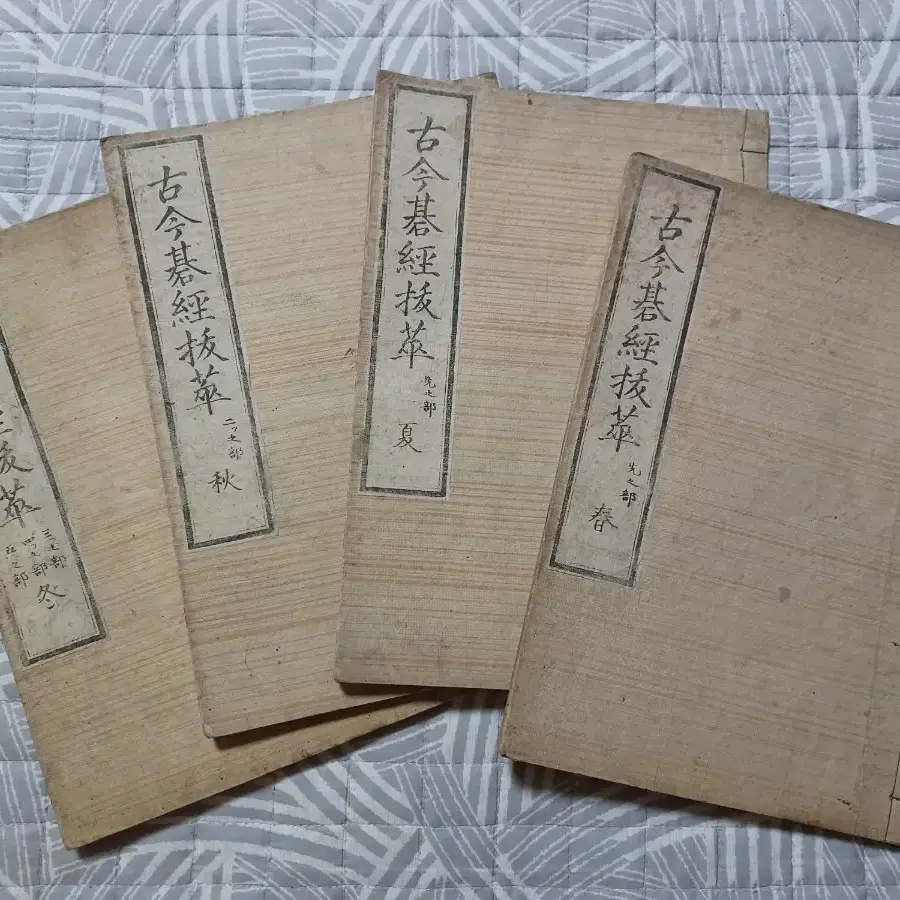 古今碁經拔萃
先之部
春
古今碁經拔萃
先之部
夏
古今碁經拔萃
二ツ之部
秋
拔萃
三ツ之部
四ツ之部
之部
冬